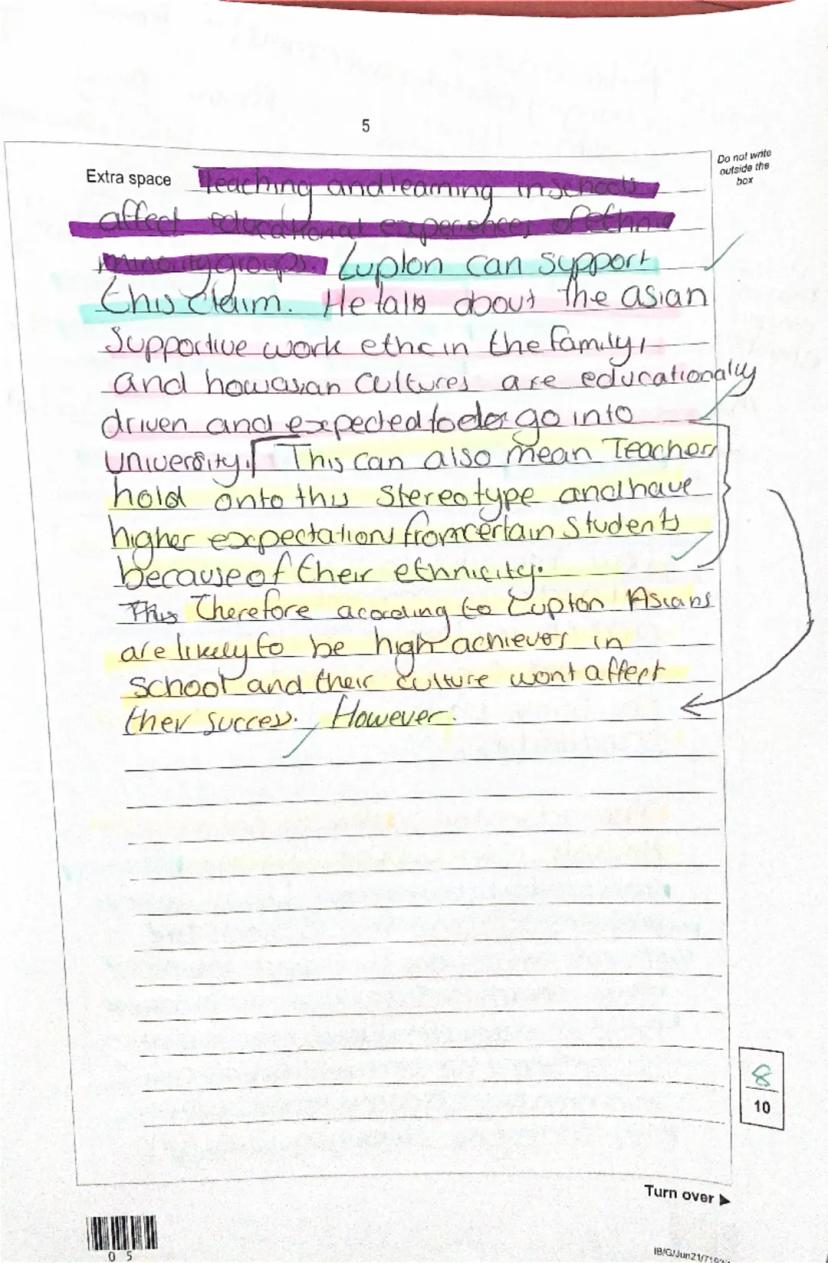 5
Do not write
outside the
box
Extra space Teaching and learning in schools
affect educational experiences of ethnic
minority groups. Lupton can support
this claim. He talks about the asian
supportive work ethc in the family,
and how asian cultures are educationaly
driven and expected to go into
university. This can also mean Teacher
hold onto this stereotype and have
higher expectations from certain students
because of their ethnicity.
This Therefore acording to Lupton Asians
are likely to be high achievers in
school and their culture wont affect
their succes. However.
8
10
Turn over ▶
0 5
IB/G/Jun21/7192